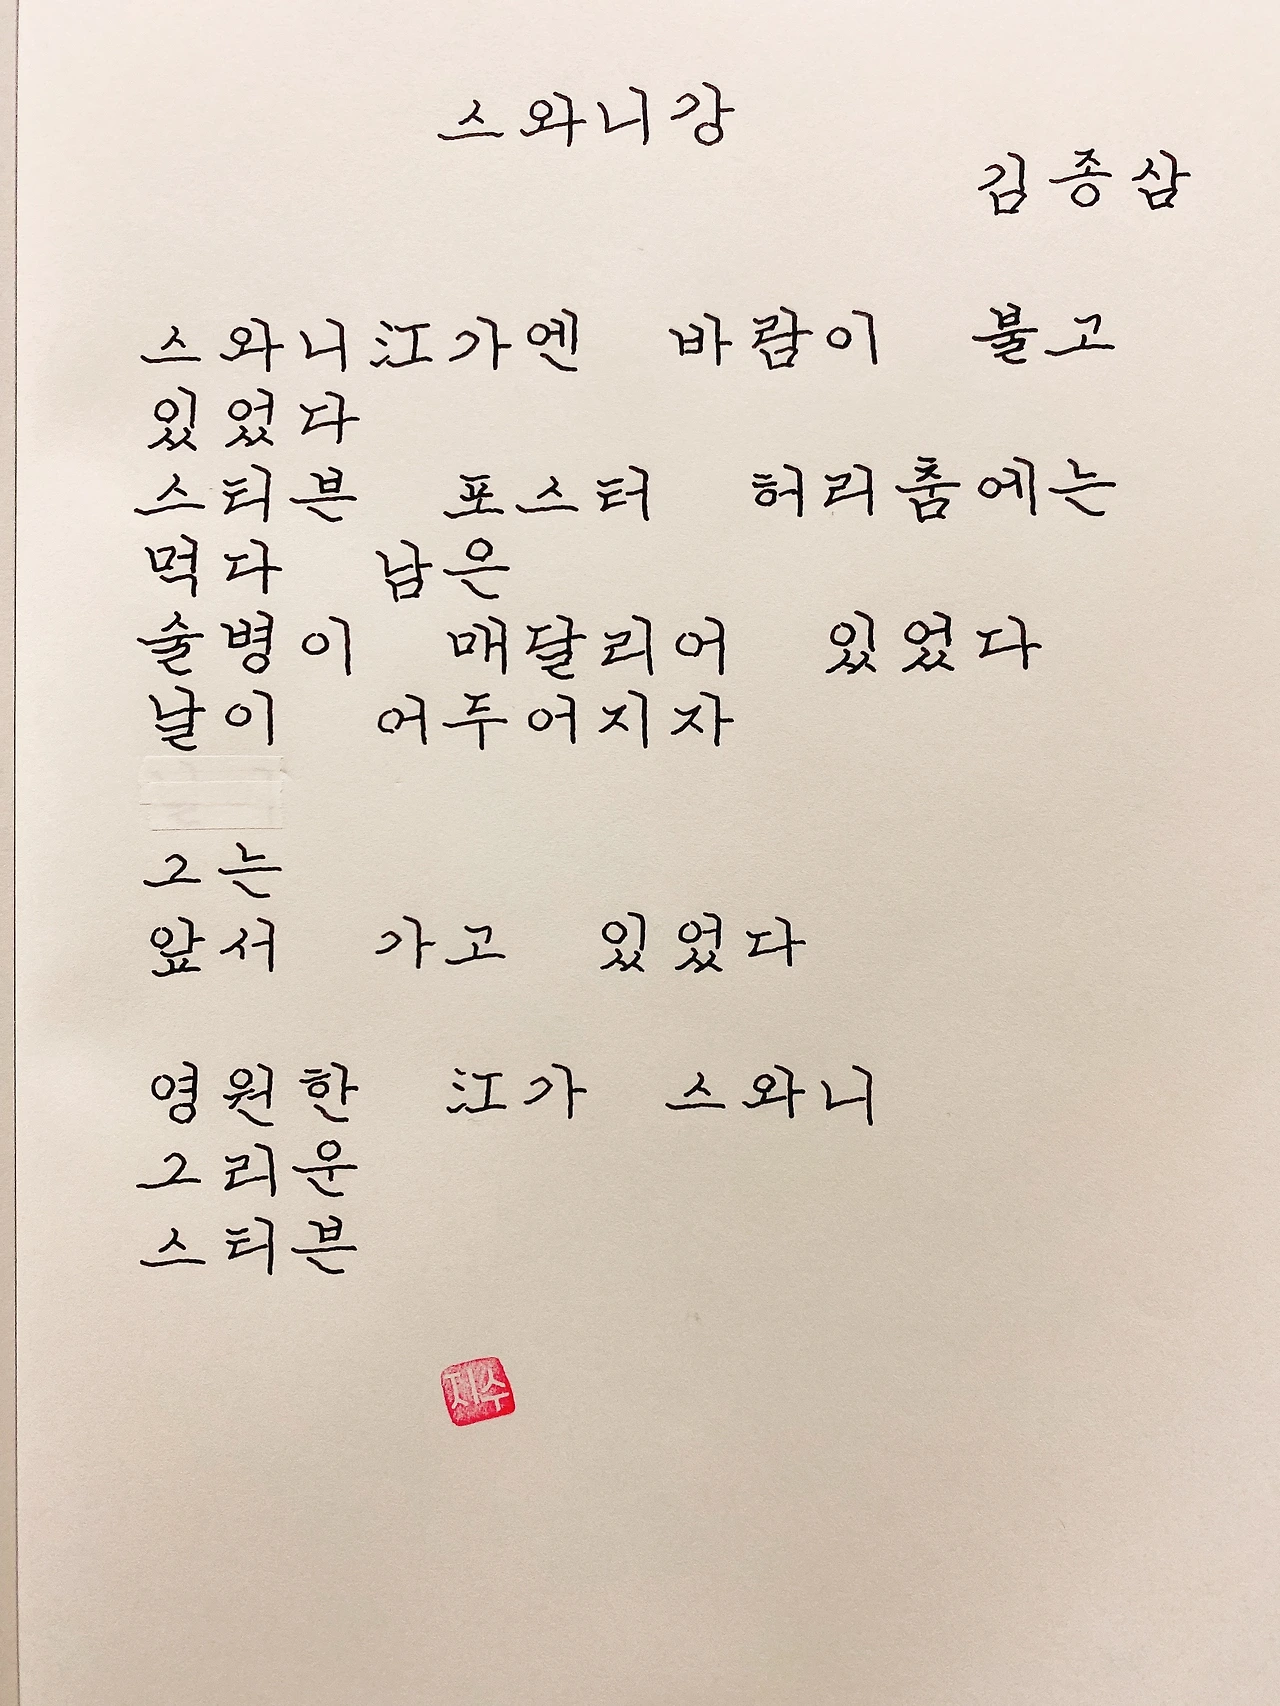 스와니강
김종삼
스와니江가엔 바람이 불고
있었다
스티븐 포스터 허리춤에는
먹다 남은
술병이 매달리어 있었다
날이 어두어지자
그는
앞서 가고 있었다
영원한 江가 스와니
그리운
스티븐
지수